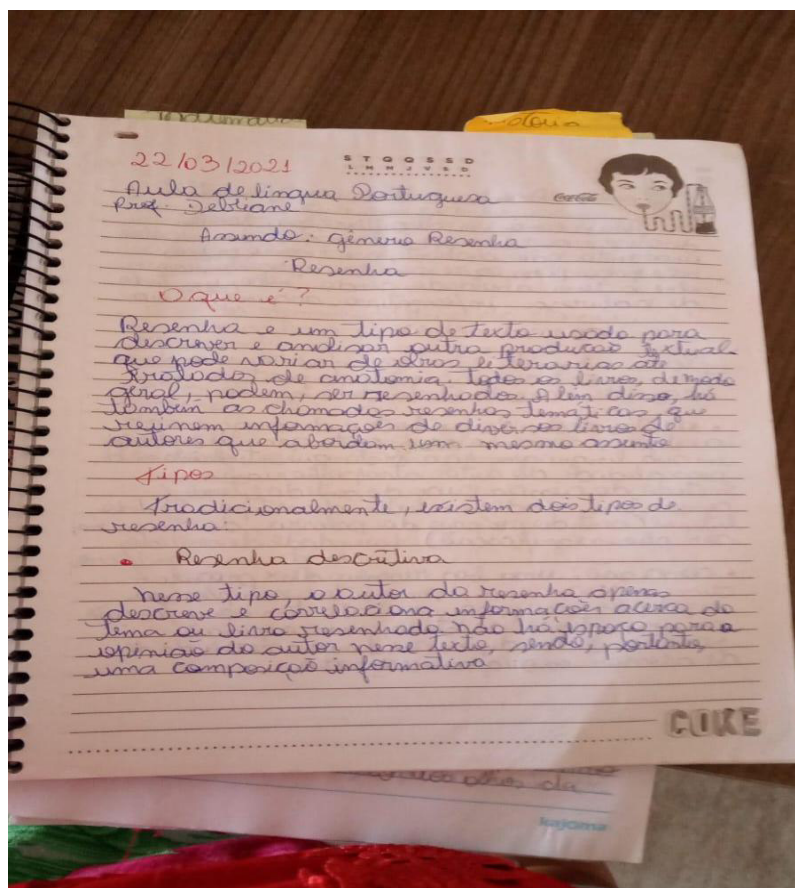 22/03/2021
S T Q Q S S D
L M M J V S D
Aula de lingua Portuguesa
Prof. Debliane
Coca-Cola
Assundo: gênero Resenha
Resenha
O que é?
Resenha e um tipo de texto usado para
descrever e analisar outra produção textual
que pode variar de obras literarias até
tratados de anatomia. todos os livros, de modo
geral, podem, ser resenhados. Além disso, há
também as chamadas resenhas tematicas, que
reúnem informações de diversos livros de
autores que abordam um mesmo assunto
Tipos
Tradicionalmente, existem dois tipos de
resenha:
• Resenha descritiva
Nesse tipo, o autor da resenha apenas
descreve e correlaciona informações acerca do
tema ou livro resenhado não há espaço para a
opinião do autor nesse texto, sendo, portanto,
uma composição informativa
COKE
olhos da
kajoma